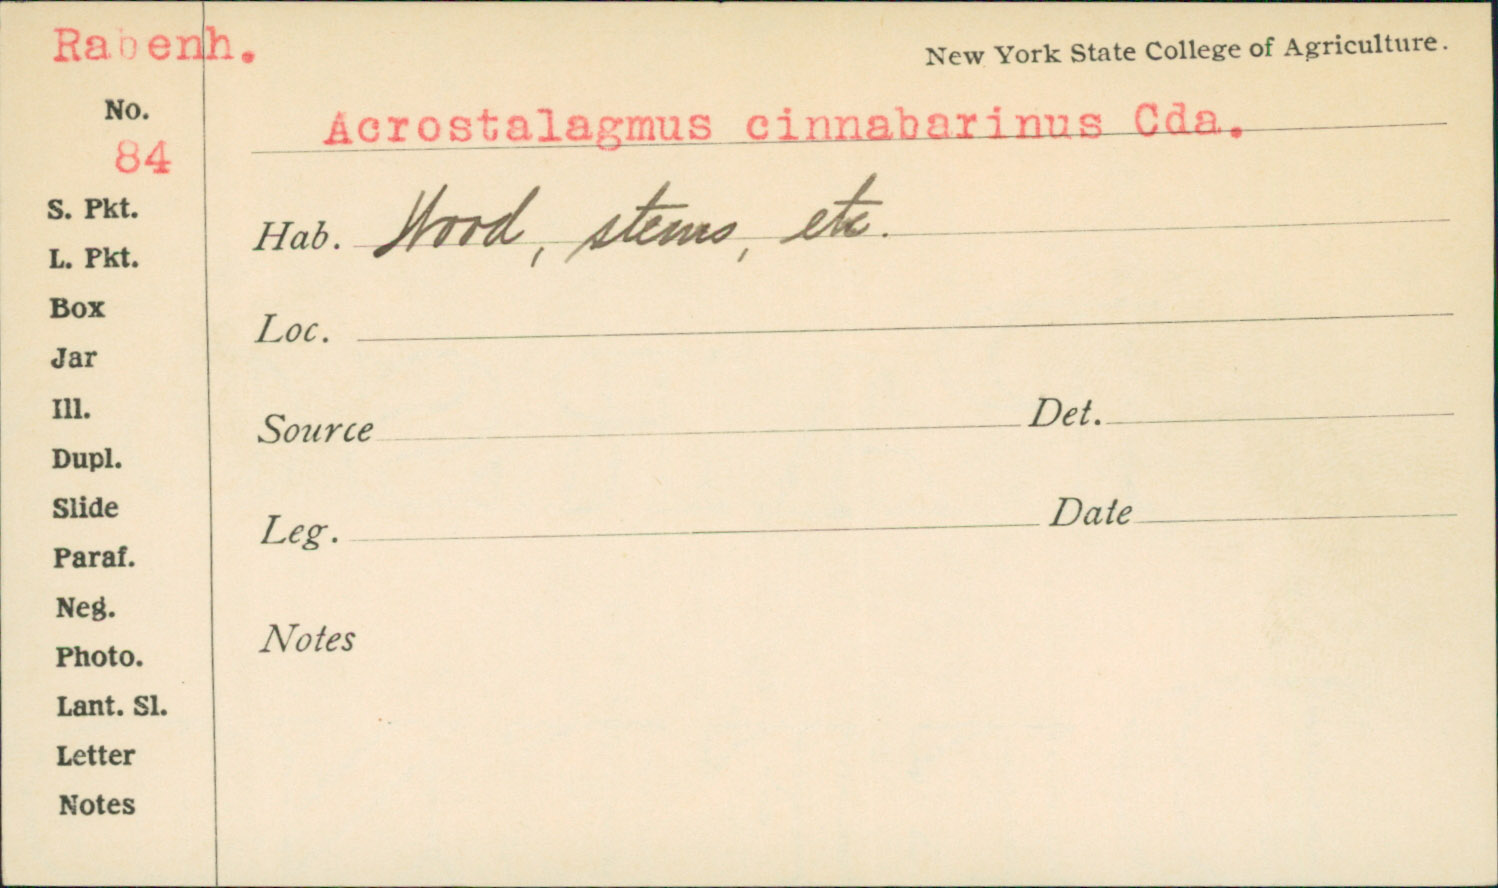 Rabenh.
New York State College of Agriculture.
No.
84
Acrostalagmus cinnabarinus Cda.
S. Pkt.
Hab. Wood, stems, etc.
L. Pkt.
Box
Loc.
Jar
Ill.
Source Det.
Dupl.
Slide
Leg. Date
Paraf.
Neg.
Notes
Photo.
Lant. Sl.
Letter
Notes